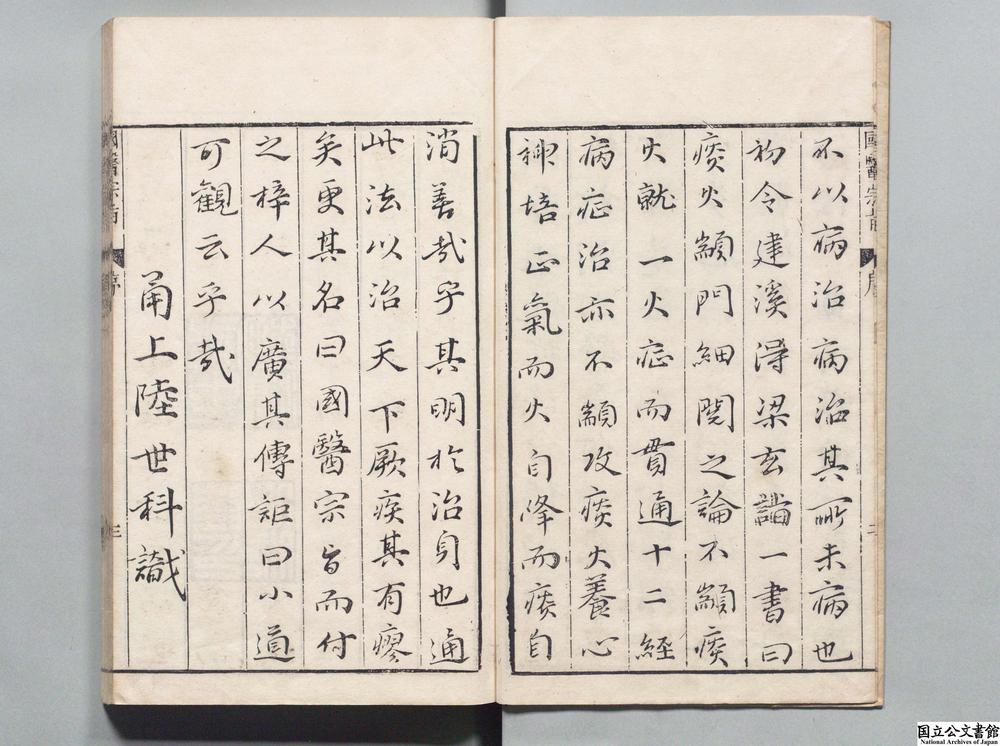 國醫宗旨 序 二
不以病治病治其所未病也
初令建溪得梁玄誥一書曰
痰火顓門細閱之論不顓痰
火就一火症而貫通十二經
病症治亦不顓攻痰火養心
神培正氣而火自降而痰自
消善哉乎其明於治身也通
此法以治天下厥疾其有瘳
矣更其名曰國醫宗旨而付
之梓人以廣其傳詎曰小道
可觀云乎哉
甬上陸世科識
國醫宗旨 序 三
国立公文書館
National Archives of Japan